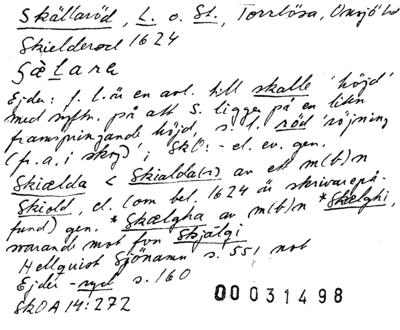 Skällaröd, L. o. St., Torrlösa, Onsjö hd
Skielderod 1624
Ejder: f. l. är en avl. till skalle 'höjd'
med syftn. på att S. ligger på en liten
framspringande höjd, s. l. röd 'röjning
(fr. a. i skog)' i SkO: - el. ev. gen.
Skiælda < Skialda(r) av ett m(b)n
Skiold, el. (om bel. 1624 är skrivarepå-
fund) gen. *Skælgha av m(b)n *Skælghi,
svarande mot fvn Skjalgi
Hellquist Sjönamn s. 551 not
Ejder -ryd s. 160
SkOA 14:272
00031498